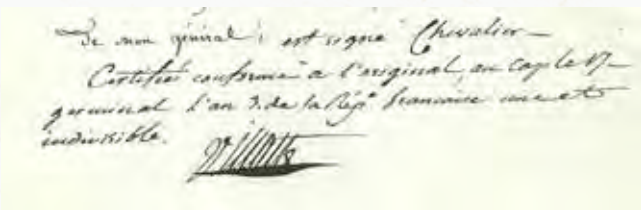 De mon général; est signé Chevalier —
Certifiés conforme à l'original au cap le 17
germinal l'an 3. de la Rép.e francaise une et
indivisible.